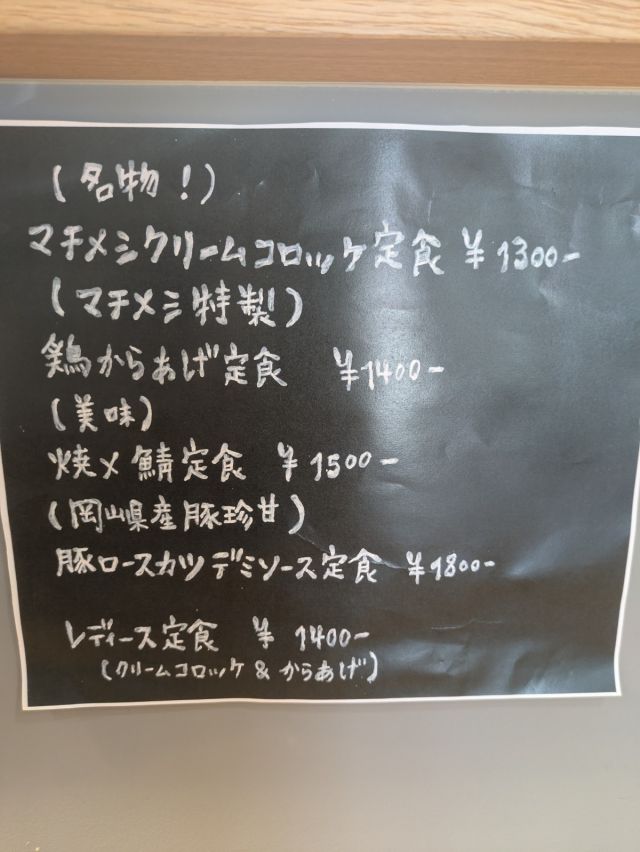 (名物!)
マチメシクリームコロッケ定食 ¥1300-
(マチメシ特製)
鶏からあげ定食 ¥1400-
(美味)
焼〆鯖定食 ¥1500-
(岡山県産豚珍甘)
豚ロースカツデミソース定食 ¥1800-
レディース定食 ¥1400-
(クリームコロッケ & からあげ)